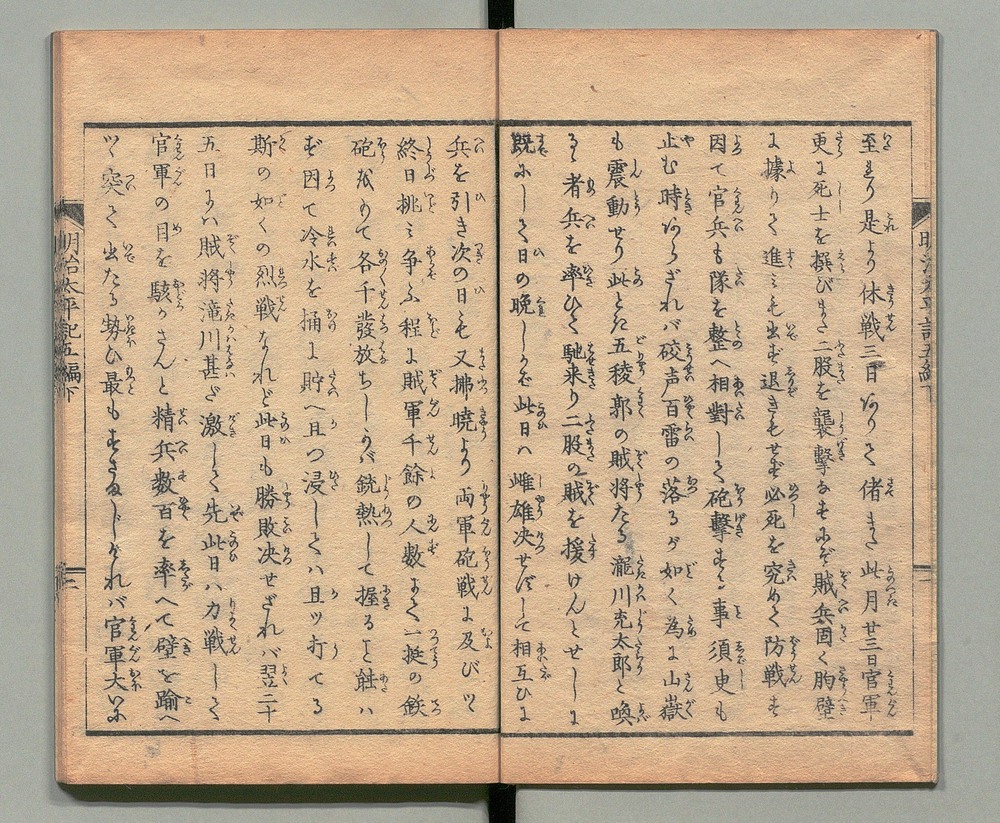 至り是より休戦三日ありて偖また此月廿三日官軍
更に死士を撰びまた二股を襲撃なすにぞ賊兵固く胸壁
に據りて進みも出ず退きもせず必死を究めて防戦す
因て官兵も隊を整へ相對して砲撃する事須臾も
止む時あらざれバ砲声百雷の落るが如く為に山嶽
も震動せり此とき五稜郭の賊将たる瀧川充太郎と喚
るゝ者兵を率ひて馳来り二股の賊を援けんとせしに
既にして日の晩しかば此日ハ雌雄决せずして相互ひに
兵を引き次の日も又拂暁より両軍砲戦に及びツヽ
終日挑み争ふ程に賊軍千餘の人数にて一挺の鉄
砲をもて各千發放ちしかバ銃熱して握ること能ハ
ず因て冷水を桶に貯へ且つ浸してハ且ツ打てる
斯の如くの烈戦なれど此日も勝敗决せざれバ翌二十
五日にハ賊将滝川甚だ激して先此日ハ力戦して
官軍の目を駭かさんと精兵数百を率へて壁を踰へ
ツヽ突て出たる勢ひ最もすさまじければ官軍大いに
明治太平記五編下
二